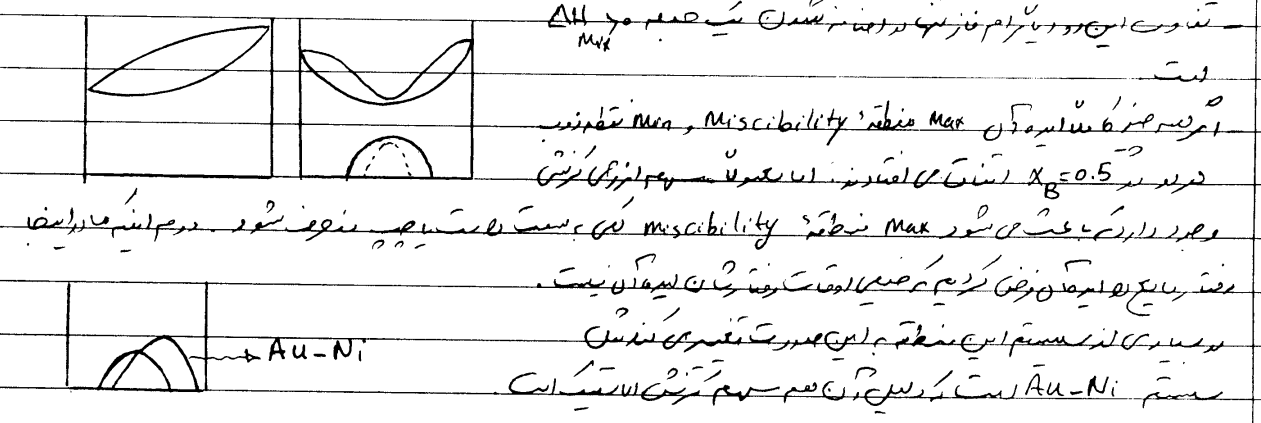 - تفاوت این دو دیاگرام فاز تنها در اضافه شدن یک جمله ΔH Mix
است
- اگر همه چیز کاملاً ایده‌آل Max منطقه Miscibility و Min نقطه ذوب
هر دو در X_B=0.5 اتفاق می افتادند. اما معمولاً سهم انرژی کرنشی
وجود دارد که باعث می شود Max منطقه miscibility کمی به سمت راست یا چپ منحرف شود. دوم اینکه ما در اینجا
رفتار مایع را ایده‌آل فرض کردیم که خیلی اوقات رفتارشان ایده‌آل نیست.
در بسیاری از سیستم این منطقه به این صورت تغییر می کند مثل
Au-Ni
سیستم Au-Ni است که دلیل آن هم سهم کرنش الاستیک است.